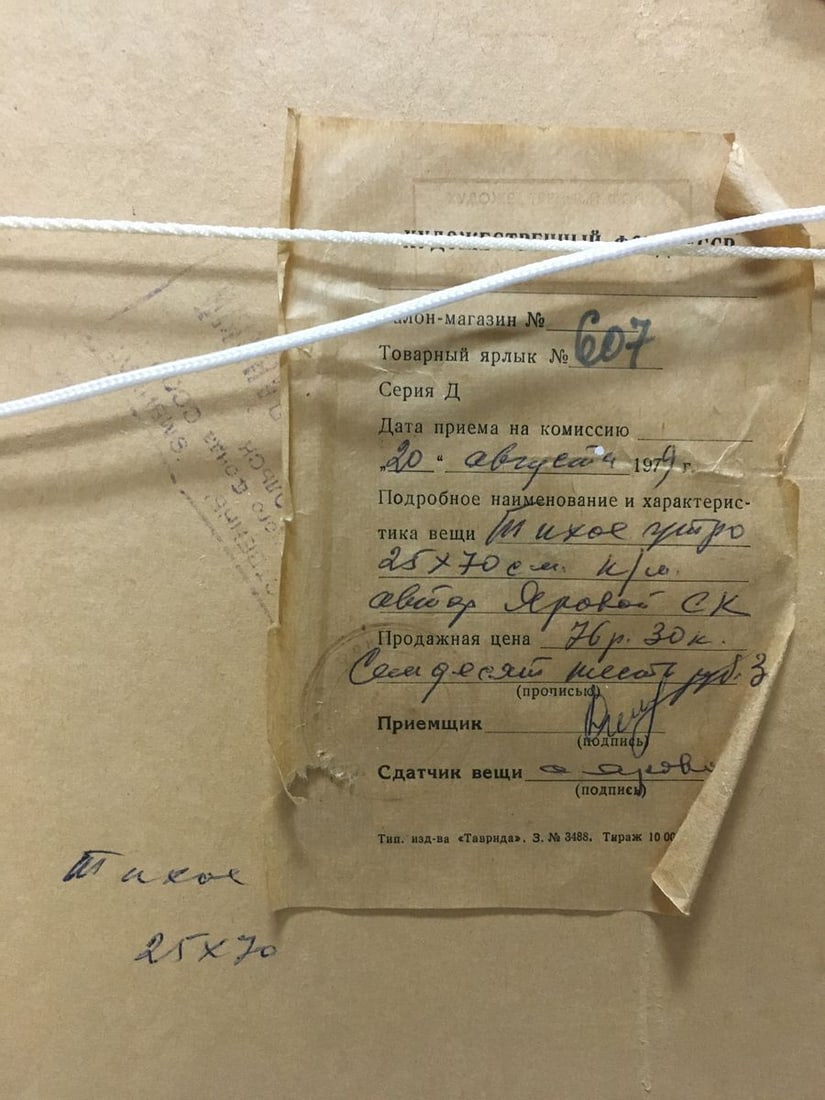 ХУДОЖЕСТВЕННЫЙ ФОНД СССР
Салон-магазин №
Товарный ярлык № 607
Серия Д
Дата приема на комиссию
„20“ августа 1979 г.
Подробное наименование и характерис-
тика вещи Тихое утро
25х70 см. к/м.
автор Яровой СК
Продажная цена 76 р. 30 к.
Семдесят шесть руб. 3
(прочисью)
Приемщик
(подпись)
Сдатчик вещи
(подпись)
Тип. изд-ва «Таврида». З. № 3488. Тираж 10 00
Тихое
25х70